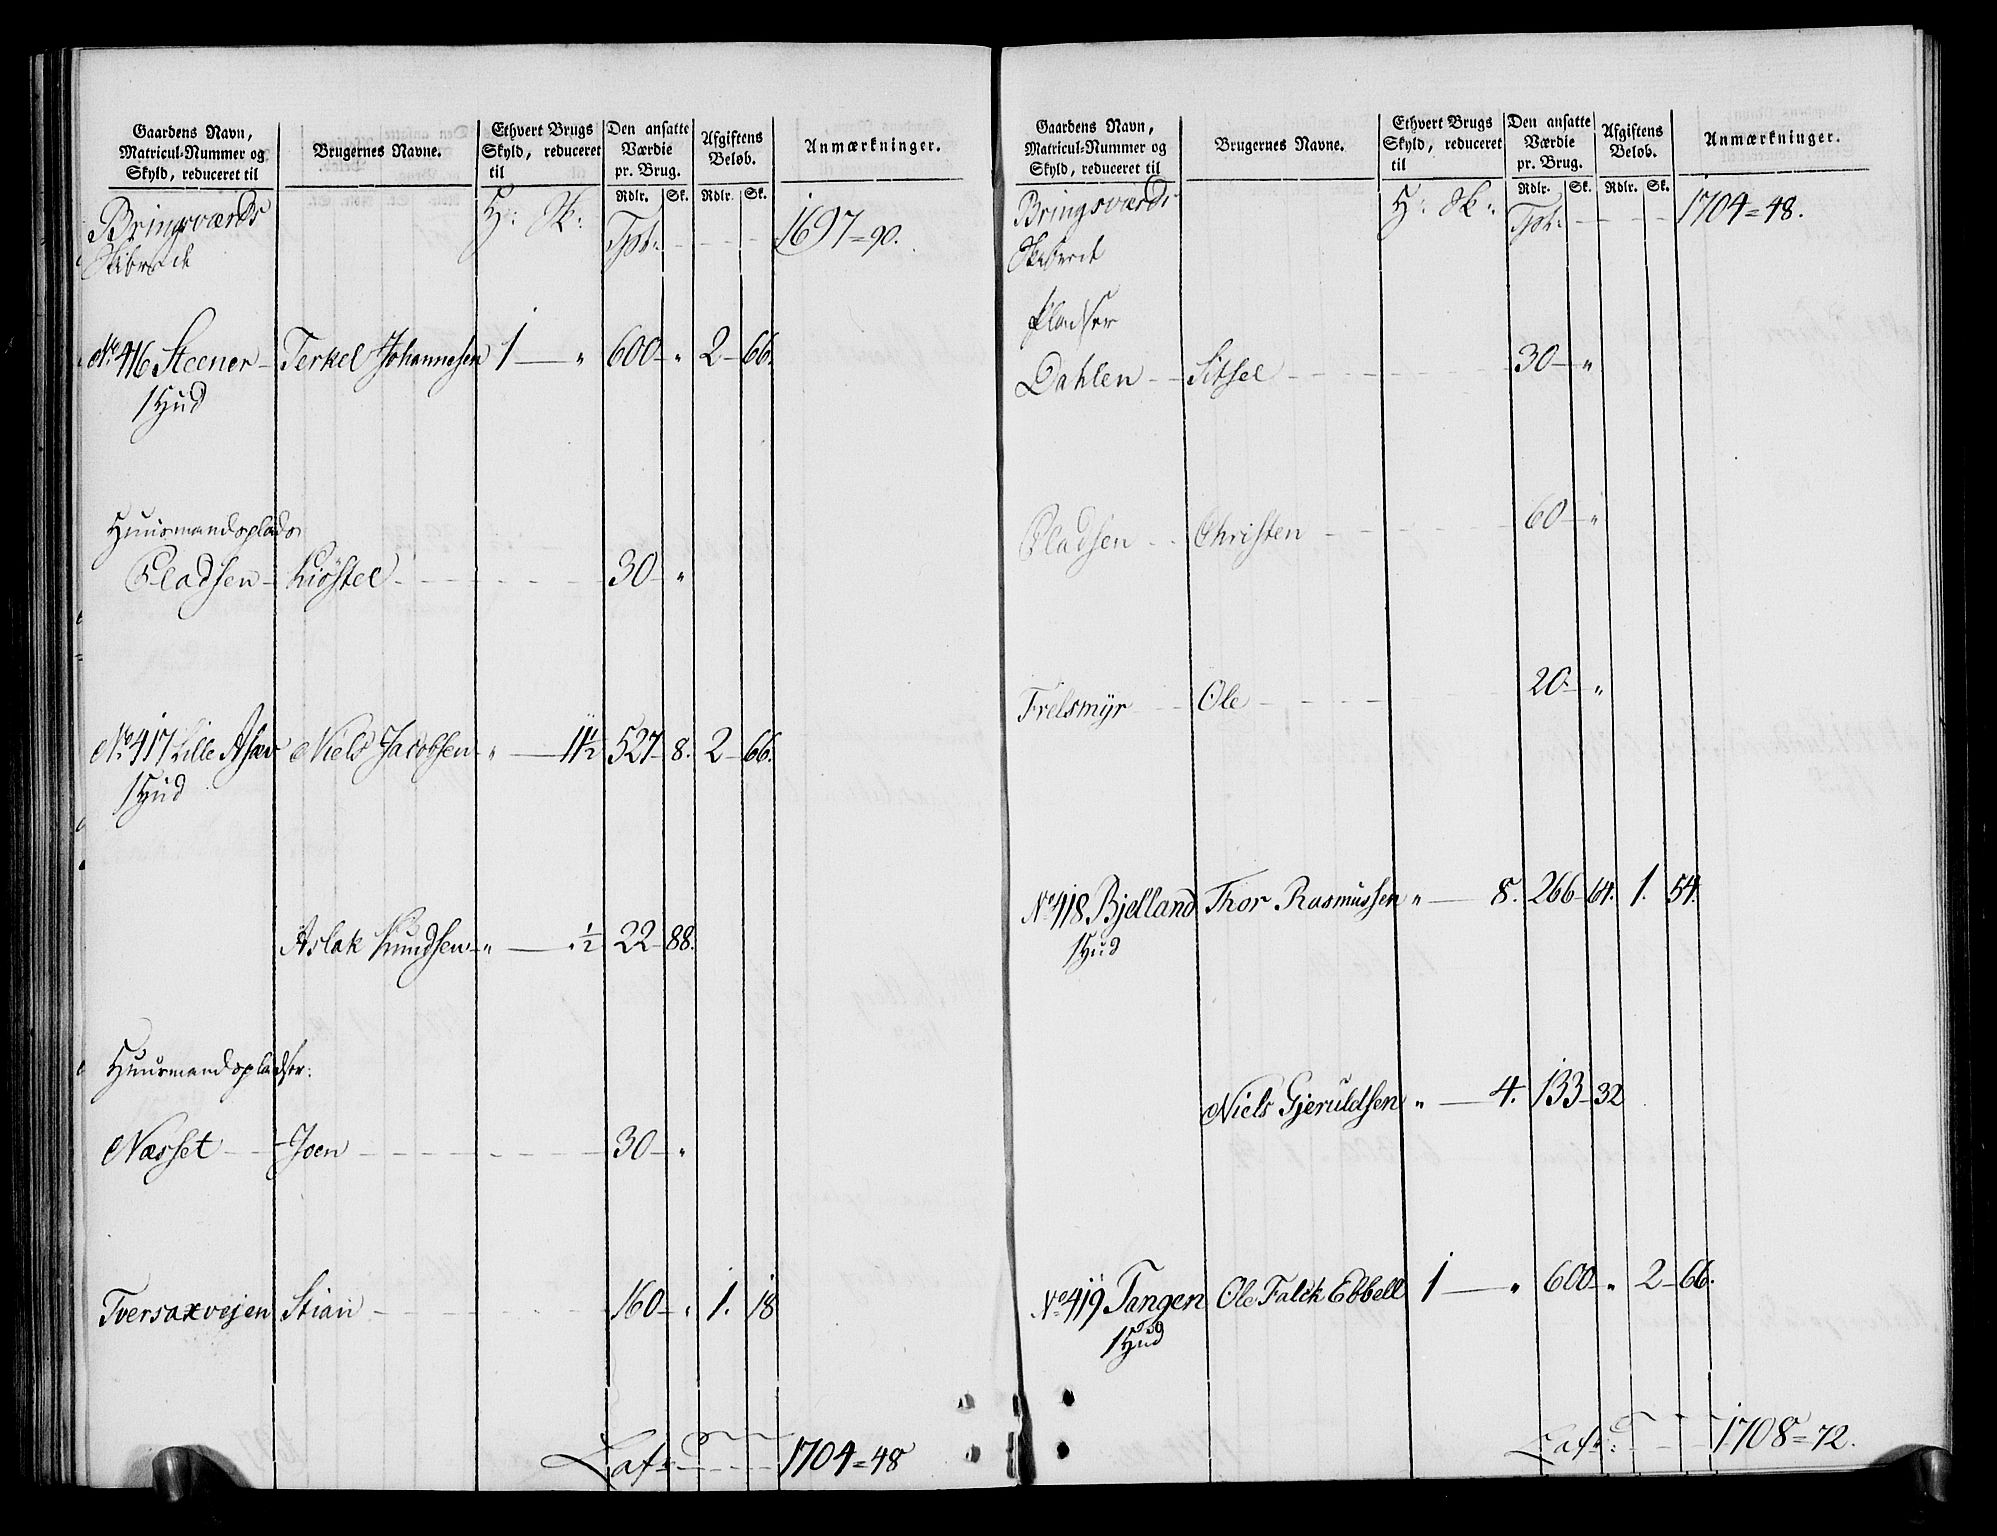 Gaardens Navn,
Matricul-Nummer og
Skyld, reduceret til
Brugernes Navne.
Ethvert Brugs
Skyld, reduceret
til
Den ansatte
Værdie
pr. Brug.
Rdlr. Sk.
Afgiftens
Beløb.
Rdlr. Sk.
Anmærkninger.
Bringsværds H: Sk: Tpt: 1697=90.
Skibrede
No 416 Steener Terkel Johannesen 1 — " 600 " 2 66.
1 Hud
Huusmandsplads
Pladsen Kiöstel 30 "
No 417 Lille Asæv Niels Jacobsen " — 11½ 527 8. 2 66.
1 Hud
Aslak Knudsen " — ½ 22 88.
Huusmandspladser:
Næsset Joen 30 "
Tversaxvejen Stian 160 " 1. 18
Lats 1704=48
Gaardens Navn,
Matricul-Nummer og
Skyld, reduceret til
Brugernes Navne.
Ethvert Brugs
Skyld, reduceret
til
Den ansatte
Værdie
pr. Brug.
Rdlr. Sk.
Afgiftens
Beløb.
Rdlr. Sk.
Anmærkninger.
Bringsværds H: Sk: Tpt: 1704=48.
Skibrede
Pladser
Dahlen Sitsel 30 "
Pladsen Christen 60 "
Frelsmyr Ole 20 "
No 418 Bjelland Thor Rasmussen " — 8. 266 64. 1. 54.
1 Hud
Niels Gjeruldsen " — 4. 133 32
No 419 Tangen Ole Falck Ebbell 1 — " 600 " 2 66.
1 Hud
Lats: 1708=72.